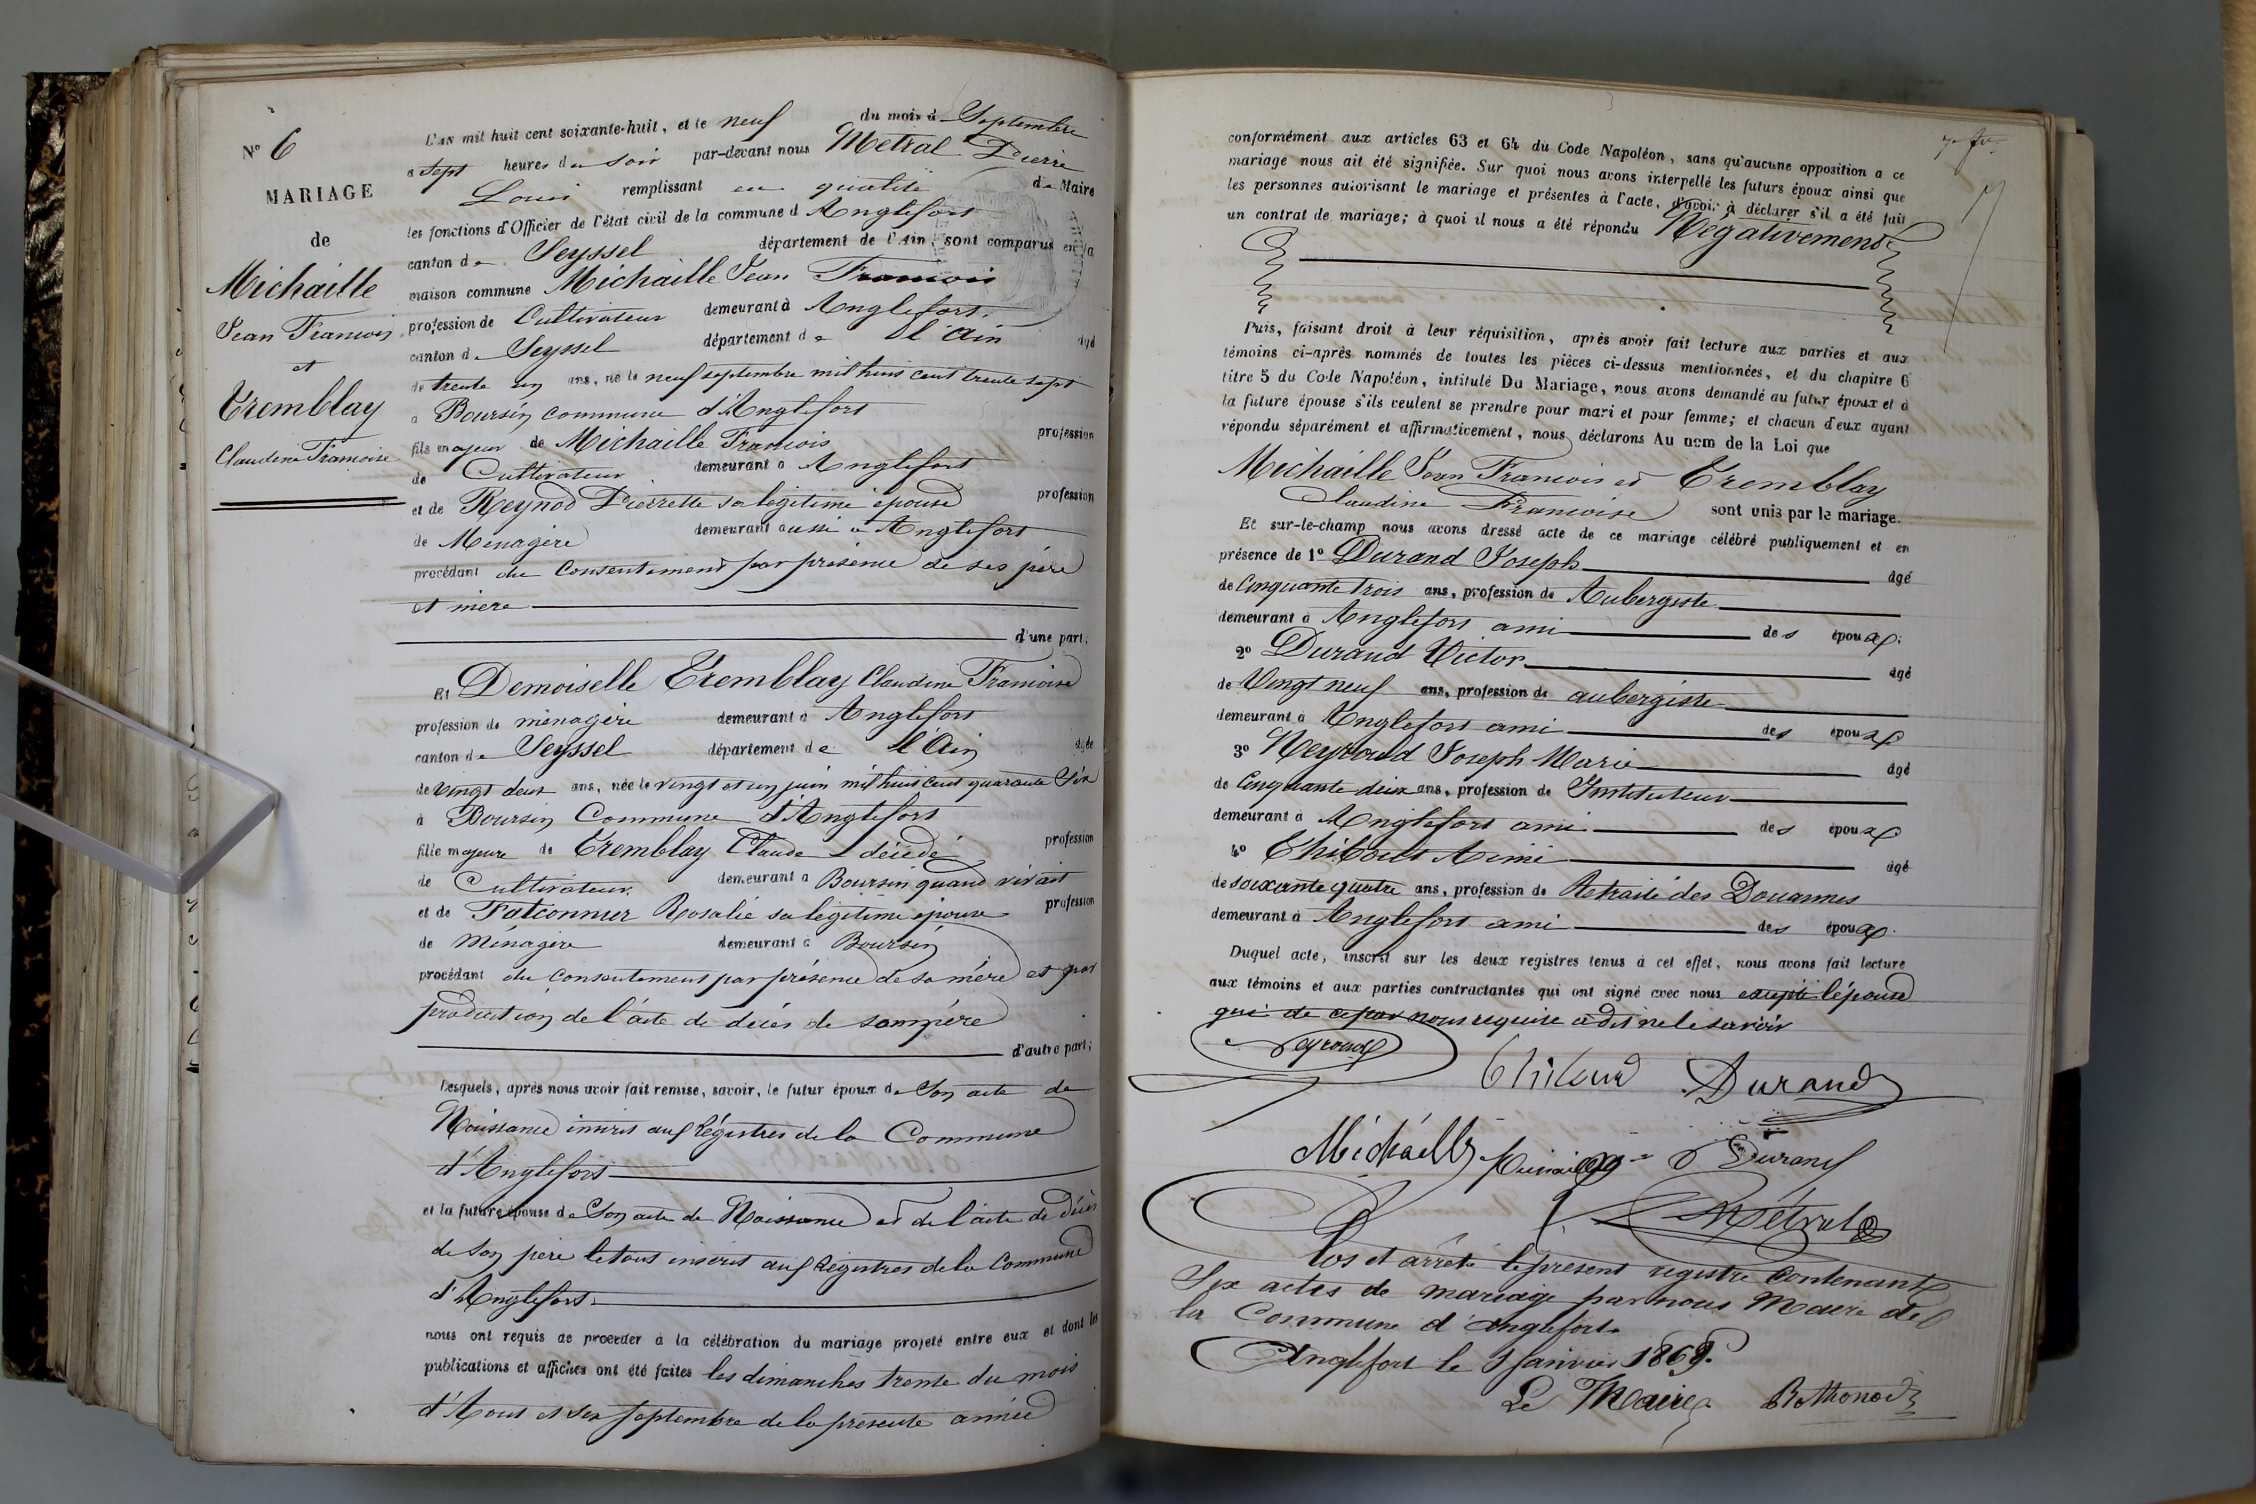 N° 6
MARIAGE
de
Michaille
Jean Francois
et
Tremblay
Claudine Francoise
L'an mil huit cent soixante-huit, et le neuf du mois d Septembre
a sept heures du soir par-devant nous Métral Pierre
Louis remplissant en qualité de Maire
les fonctions d'Officier de l'état civil de la commune d Anglefort
canton de Seyssel département de l'Ain, sont comparus en la
maison commune Michaille Jean Francois
profession de Cultivateur demeurant à Anglefort
canton de Seyssel département de l'Ain âgé
de trente un ans, né le neuf septembre mil huit cent trente sept
a Boursin commune d'Anglefort
fils majeur de Michaille Francois profession
de Cultivateur demeurant a Anglefort
et de Reynod Pierrette sa légitime épouse profession
de Ménagère demeurant aussi a Anglefort
procédant du consentement par présence de ses père
et mère d'une part.
Et Demoiselle Tremblay Claudine Francoise
profession de ménagère demeurant à Anglefort
canton de Seyssel département de l'Ain âgée
de vingt deux ans, née le vingt et un juin mil huit cent quarante six
à Boursin Commune d'Anglefort
fille majeure de Tremblay Claude décédé profession
de Cultivateur demeurant a Boursin quand vivait
et de Falconnier Rosalie sa légitime épouse profession
de Ménagère demeurant à Boursin
procédant du consentement par présence de sa mère et par
production de l'acte de décès de son père
d'autre part;
Lesquels, après nous avoir fait remise, savoir, le futur époux de Son acte de
Naissance inscrit aux Régistres de la Commune
d'Anglefort
et la future épouse de Son acte de Naissance et de l'acte de décès
de Son père le tout inscrit aux Régistres de la Commune
d'Anglefort
nous ont requis de procéder à la célébration du mariage projeté entre eux et dont les
publications et affiches ont été faites les dimanches trente du mois
d'Aout et six septembre de la présente année
conformément aux articles 63 et 64 du Code Napoléon, sans qu'aucune opposition a ce
mariage nous ait été signifiée. Sur quoi nous avons interpellé les futurs époux ainsi que
les personnes autorisant le mariage et présentes à l'acte, d'avoir à déclarer s'il a été fait
un contrat de mariage; à quoi il nous a été répondu Négativement
Puis, faisant droit à leur réquisition, après avoir fait lecture aux parties et aux
témoins ci-après nommés de toutes les pièces ci-dessus mentionnées, et du chapitre 6
titre 5 du Code Napoléon, intitulé Du Mariage, nous avons demandé au futur époux et à
la future épouse s'ils veulent se prendre pour mari et pour femme; et chacun d'eux ayant
répondu séparément et affirmativement, nous déclarons Au nom de la Loi que
Michaille Jean Francois et Tremblay
Claudine Francoise sont unis par le mariage.
Et sur-le-champ nous avons dressé acte de ce mariage célébré publiquement et en
présence de 1° Durand Joseph âgé
de Cinquante trois ans, profession de Aubergiste
demeurant à Anglefort ami des époux.
2° Durand Victor âgé
de Vingt neuf ans, profession de aubergiste
demeurant à Anglefort ami des époux
3° Neyroud Joseph Marie âgé
de Cinquante deux ans, profession de Instituteur
demeurant à Anglefort ami des époux
4° Thiboud Aimé âgé
de soixante quatre ans, profession de Retraité des Douannes
demeurant à Anglefort ami des époux.
Duquel acte, inscrit sur les deux registres tenus à cet effet, nous avons fait lecture
aux témoins et aux parties contractantes qui ont signé avec nous excepté l'épouse
qui de ce par nous requise a dit ne le savoir
Neyroud
Thiboud Durand
Michaille Durand
Métral
Clos et arrêté le présent registre contenant
Six actes de mariage par nous Maire de
la Commune d'Anglefort
Anglefort le 1 Janvier 1869.
Le Maire Bothonod